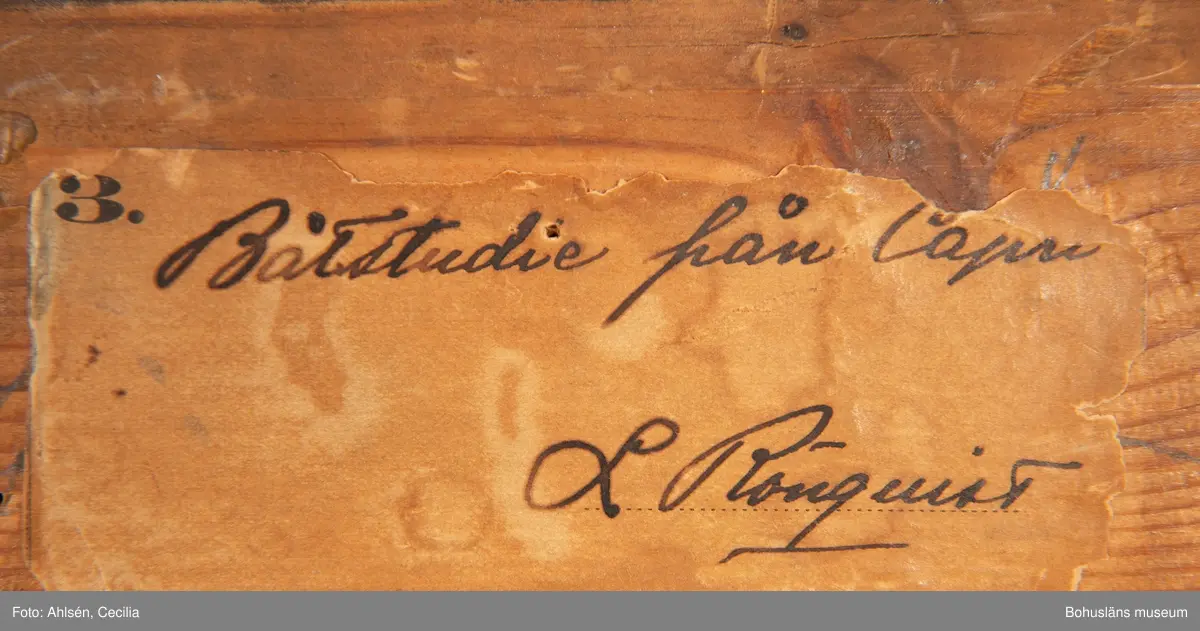 3. Båtstudie från Capri
L Rönquist
Foto: Ahlsén, Cecilia
Bohusläns museum